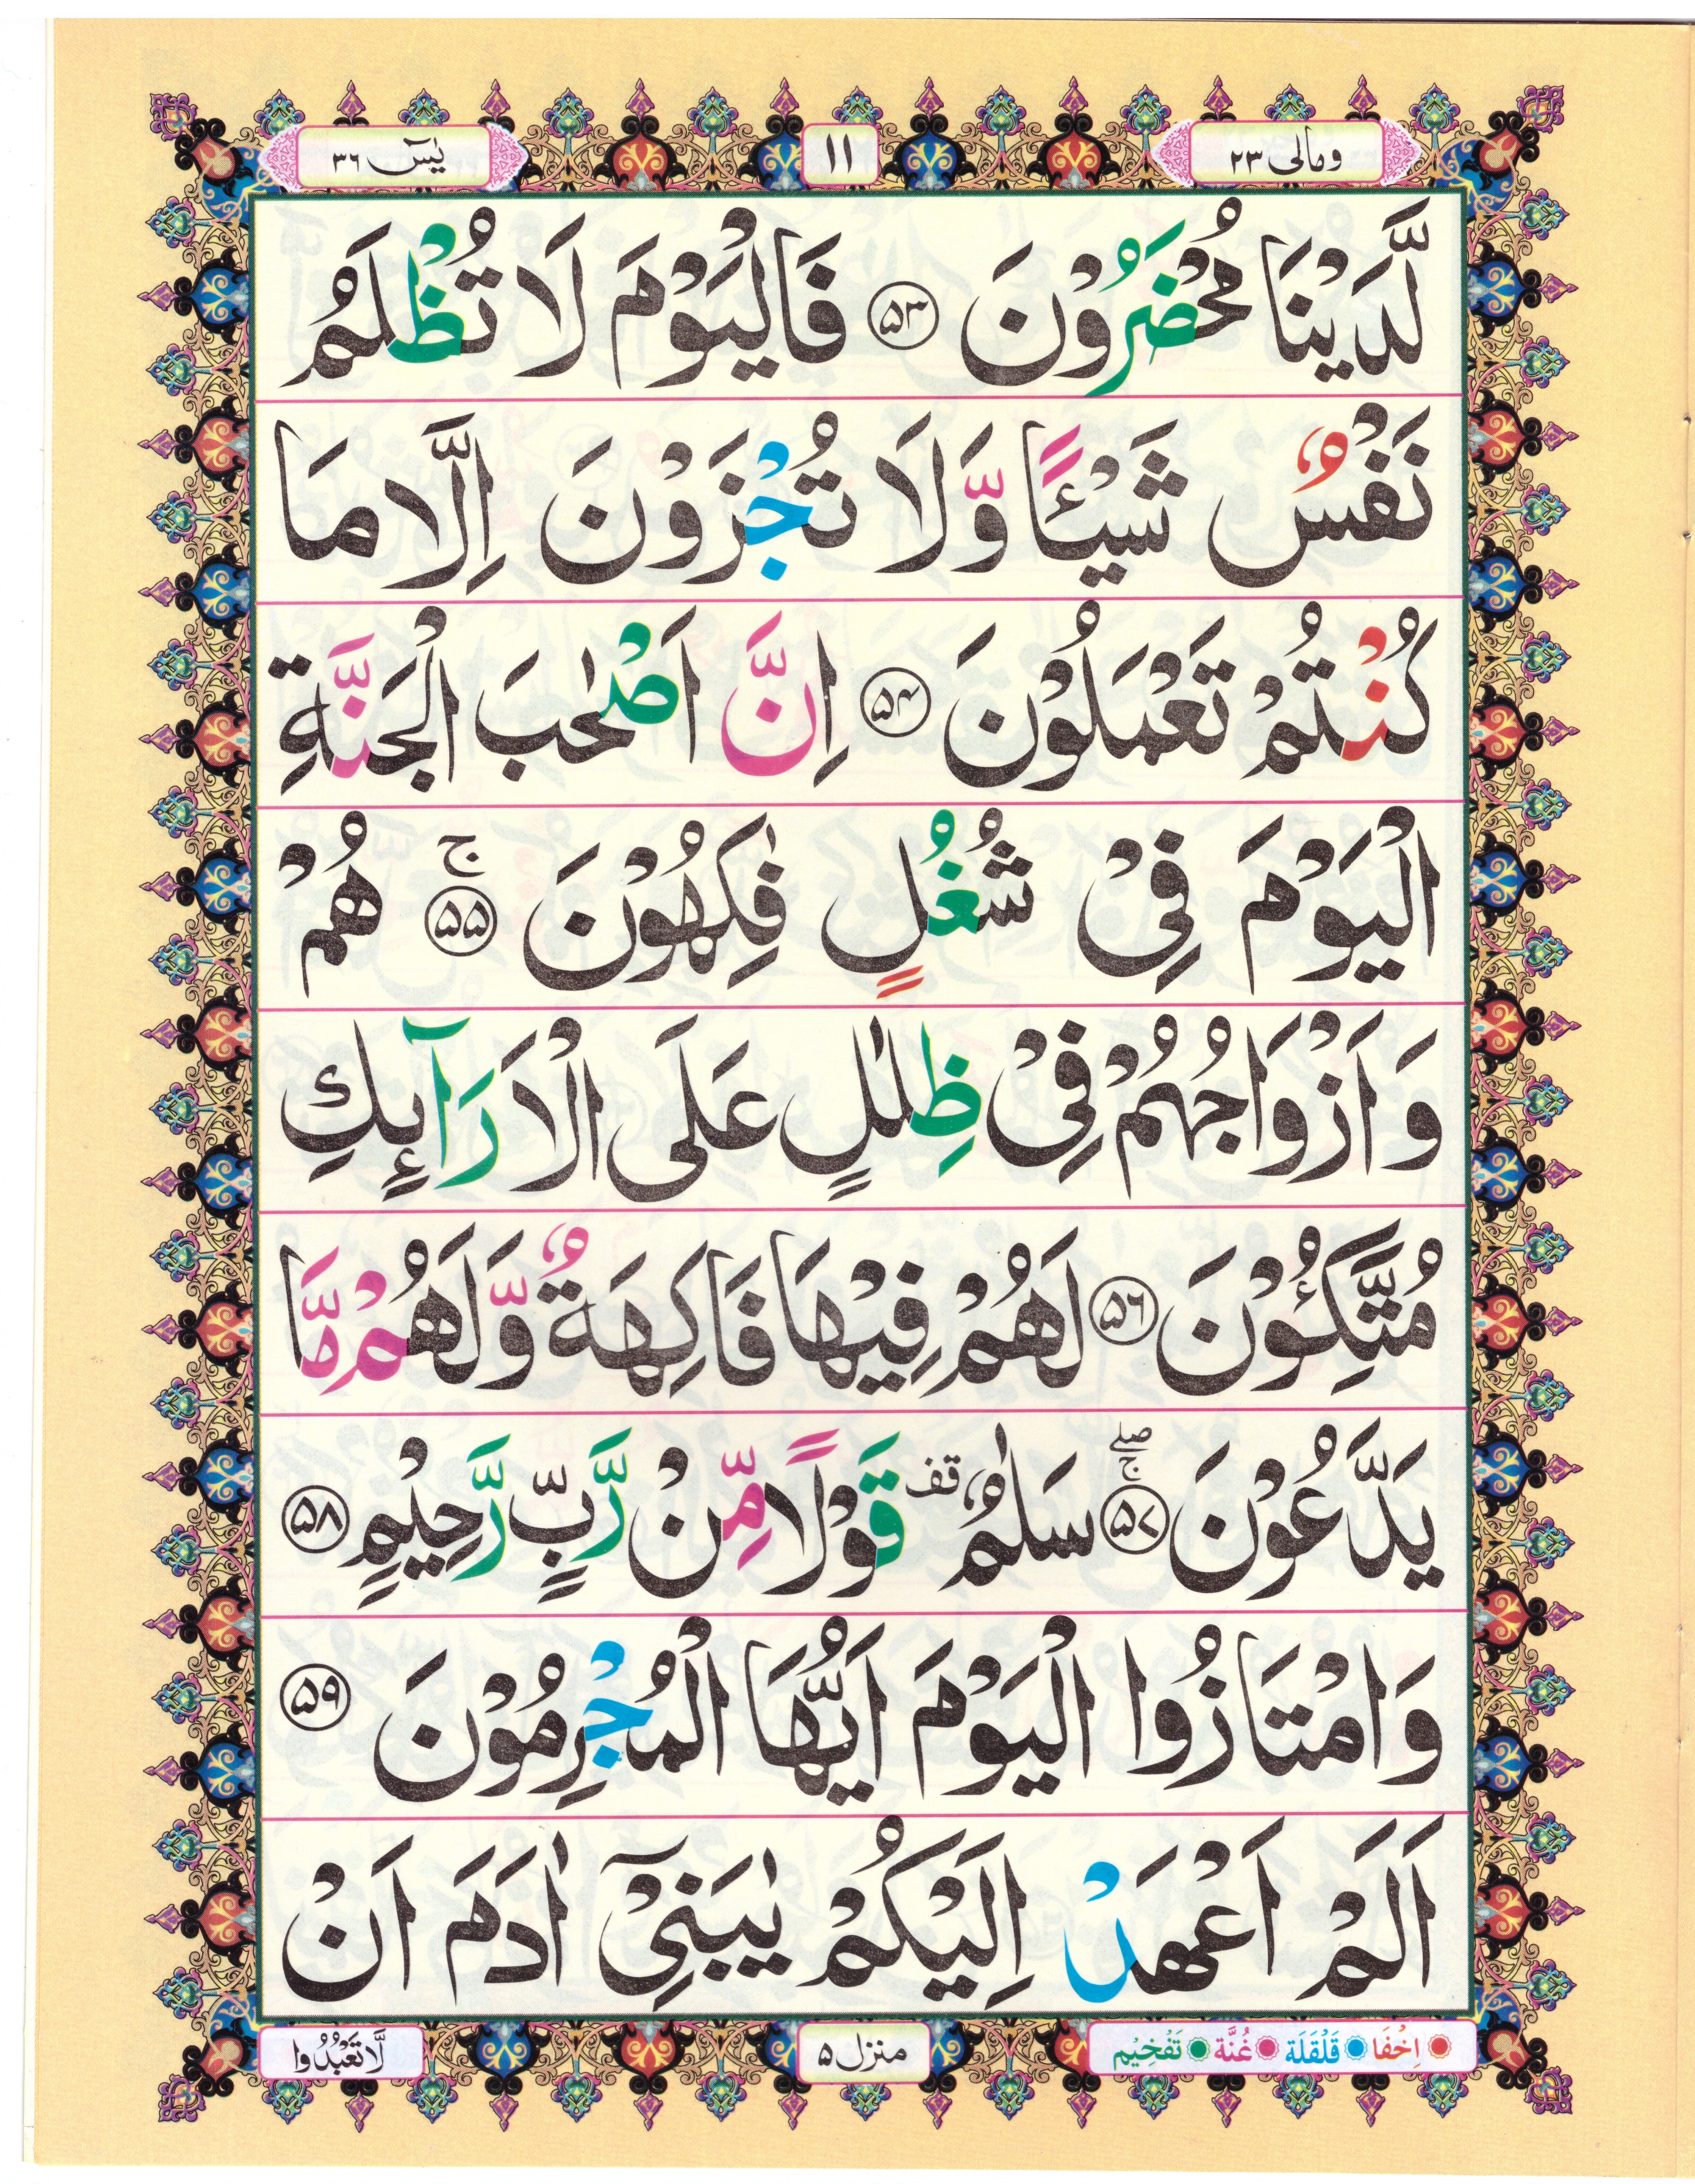 ومالی ۲۳
۱۱
یٰسٓ ۳۶
لَّدَیْنَا مُحْضَرُوْنَ ۵۳ فَالْیَوْمَ لَا تُظْلَمُ
نَفْسٌ شَیْـًٔا وَّلَا تُجْزَوْنَ اِلَّا مَا
كُنْتُمْ تَعْمَلُوْنَ ۵۴ اِنَّ اَصْحٰبَ الْجَنَّةِ
الْیَوْمَ فِیْ شُغُلٍ فٰكِهُوْنَ ۵۵ ج هُمْ
وَاَزْوَاجُهُمْ فِیْ ظِلٰلٍ عَلَی الْاَرَآىِٕكِ
مُتَّكِـُٔوْنَ ۵۶ لَهُمْ فِیْهَا فَاكِهَةٌ وَّلَهُمْ مَّا
یَدَّعُوْنَ ۵۷ صلے ج سَلٰمٌ قف قَوْلًا مِّنْ رَّبٍّ رَّحِیْمٍ ۵۸
وَامْتَازُوا الْیَوْمَ اَیُّهَا الْمُجْرِمُوْنَ ۵۹
اَلَمْ اَعْهَدْ اِلَیْكُمْ یٰبَنِیْۤ اٰدَمَ اَنْ
اِخْفَا قَلْقَلَة غُنَّة تَفْخِیْم
منزل ۵
لَّا تَعْبُدُوا